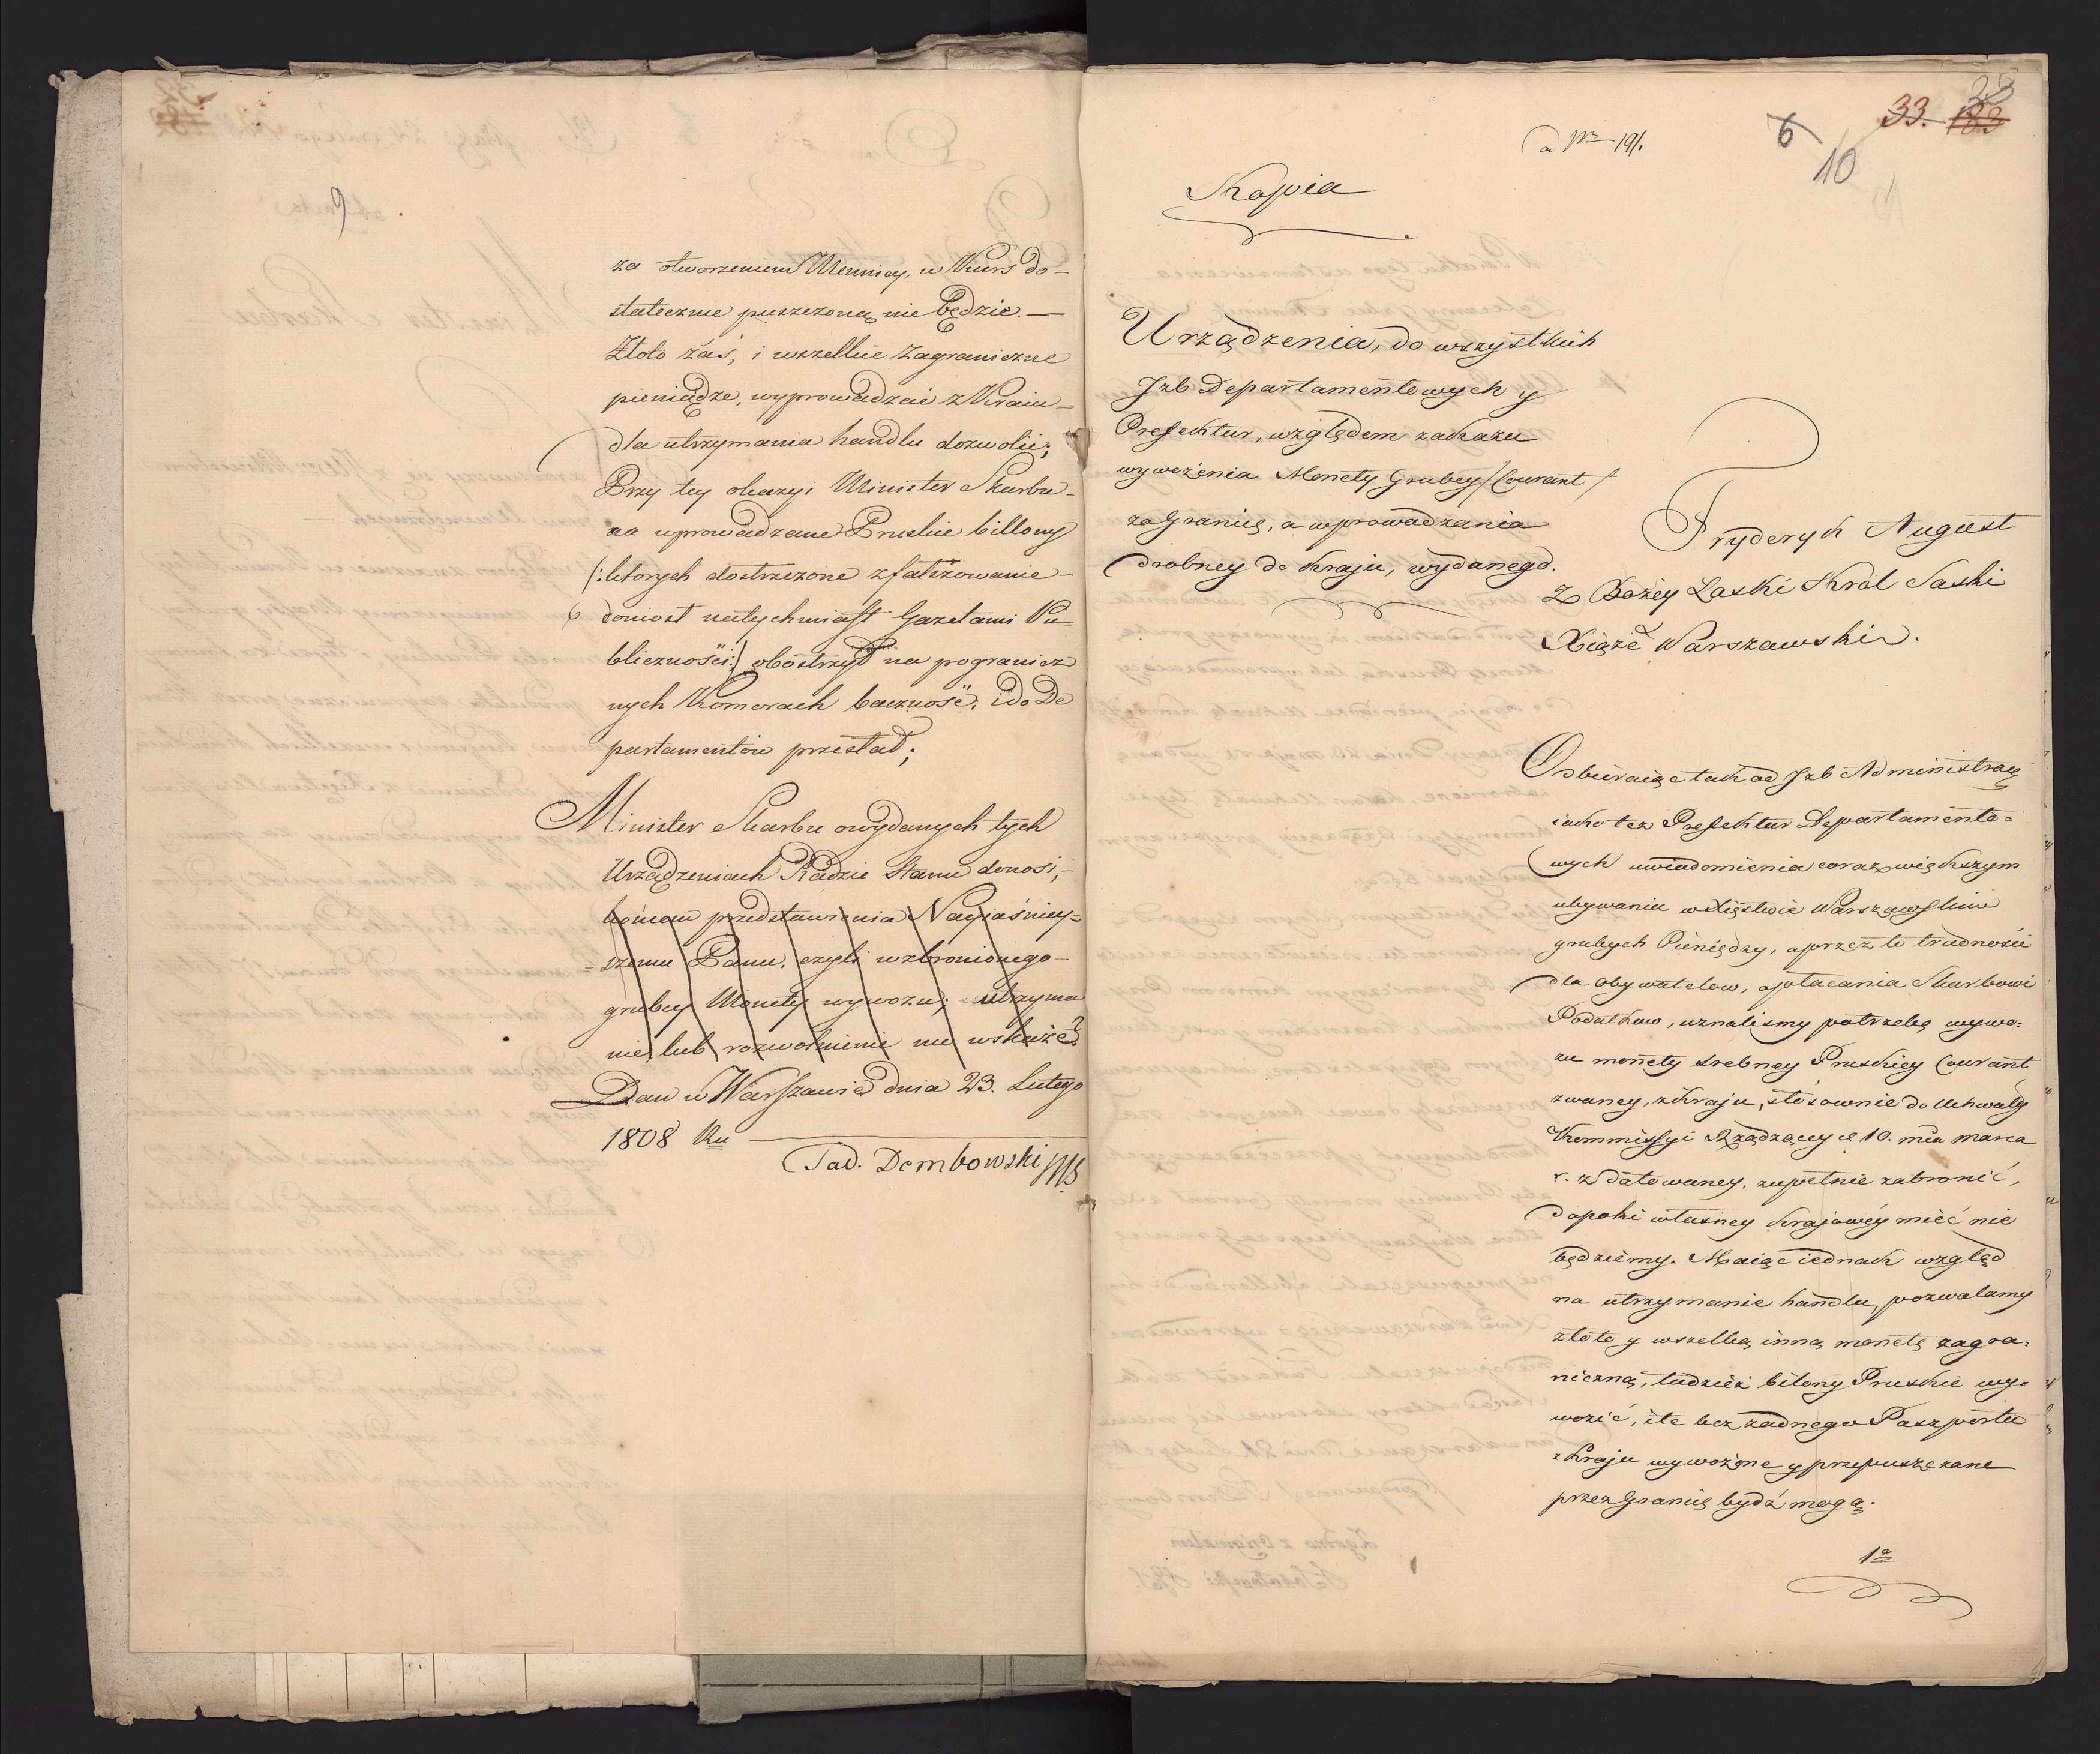 9.
za otworzeniem Mennicy, w Kurs do-
statecznie puszczoną nie będzie. —
Złoto zaś, i wszelkie Zagraniczne
pieniądze, wyprowadzać z Kraiu-
dla utrzymania handlu dozwolić;
Przy tey okazyi Minister Skarbu-
na uprowadzane Pruskie billony
/:ktorych dostrzeżone zfałszowanie-
doniosł natychmiast Gazetami Pu-
bliczności:/ obostrzył na pogranicz
nych Komorach baczność; i do De
partamentów przesłał;
Minister Skarbu o wydanych tych
Urządzeniach Radzie Stanu donosi,-
końcem przedstawienia Nayiaśniey-
=szemu Panu, czyli wzbronionego-
grubey Monety wywozu; utrzyma
nie, lub rozwolnienie nie wskaże?
Dan w Warszawie dnia 23. Lutego
1808 Ru
Tad. Dembowski MS
28
33. 183
6
10
a Nro 191.
Kopia
Urządzenia, do wszystkich
Jzb Departamentowych y
Prefektur, względem zakazu
wywożenia Monety Grubey /Courant/
za Granicę, a wprowadzania
drobney do Kraju, wydanego.
Fryderyk August
Z Bożey Łaski Krol Saski
Xiąże Warszawski.
Odbieraiąc tak od Jzb Administracy
iako też Prefektur Departamento=
wych uwiadomienia coraz większym
ubywaniu w Xięstwie Warszawskim
grubych Pieniędzy, a przez to trudności
dla obywatelow, opłacania Skarbowi
Podatkow, uznaliśmy potrzebę wywo=
zu monety srebney Pruskiey Courant
zwaney, z Kraju, stósownie do Uchwały
Kommissyi Rządzącey d 10. mca marca
r. z datowaney, zupełnie zabronić,
dopoki własney Krajowéy mieć nie
będziemy. Maiąc iednak wzgląd
na utrzymanie handlu, pozwalamy
złoto y wszelką inną monetę zagra=
niczną, tudzież bilony Pruskie wy=
wozić, ile bez żadnego Paszportu
z Kraju wywożone y przepuszczane
przez Granicę bydź mogą.
1o